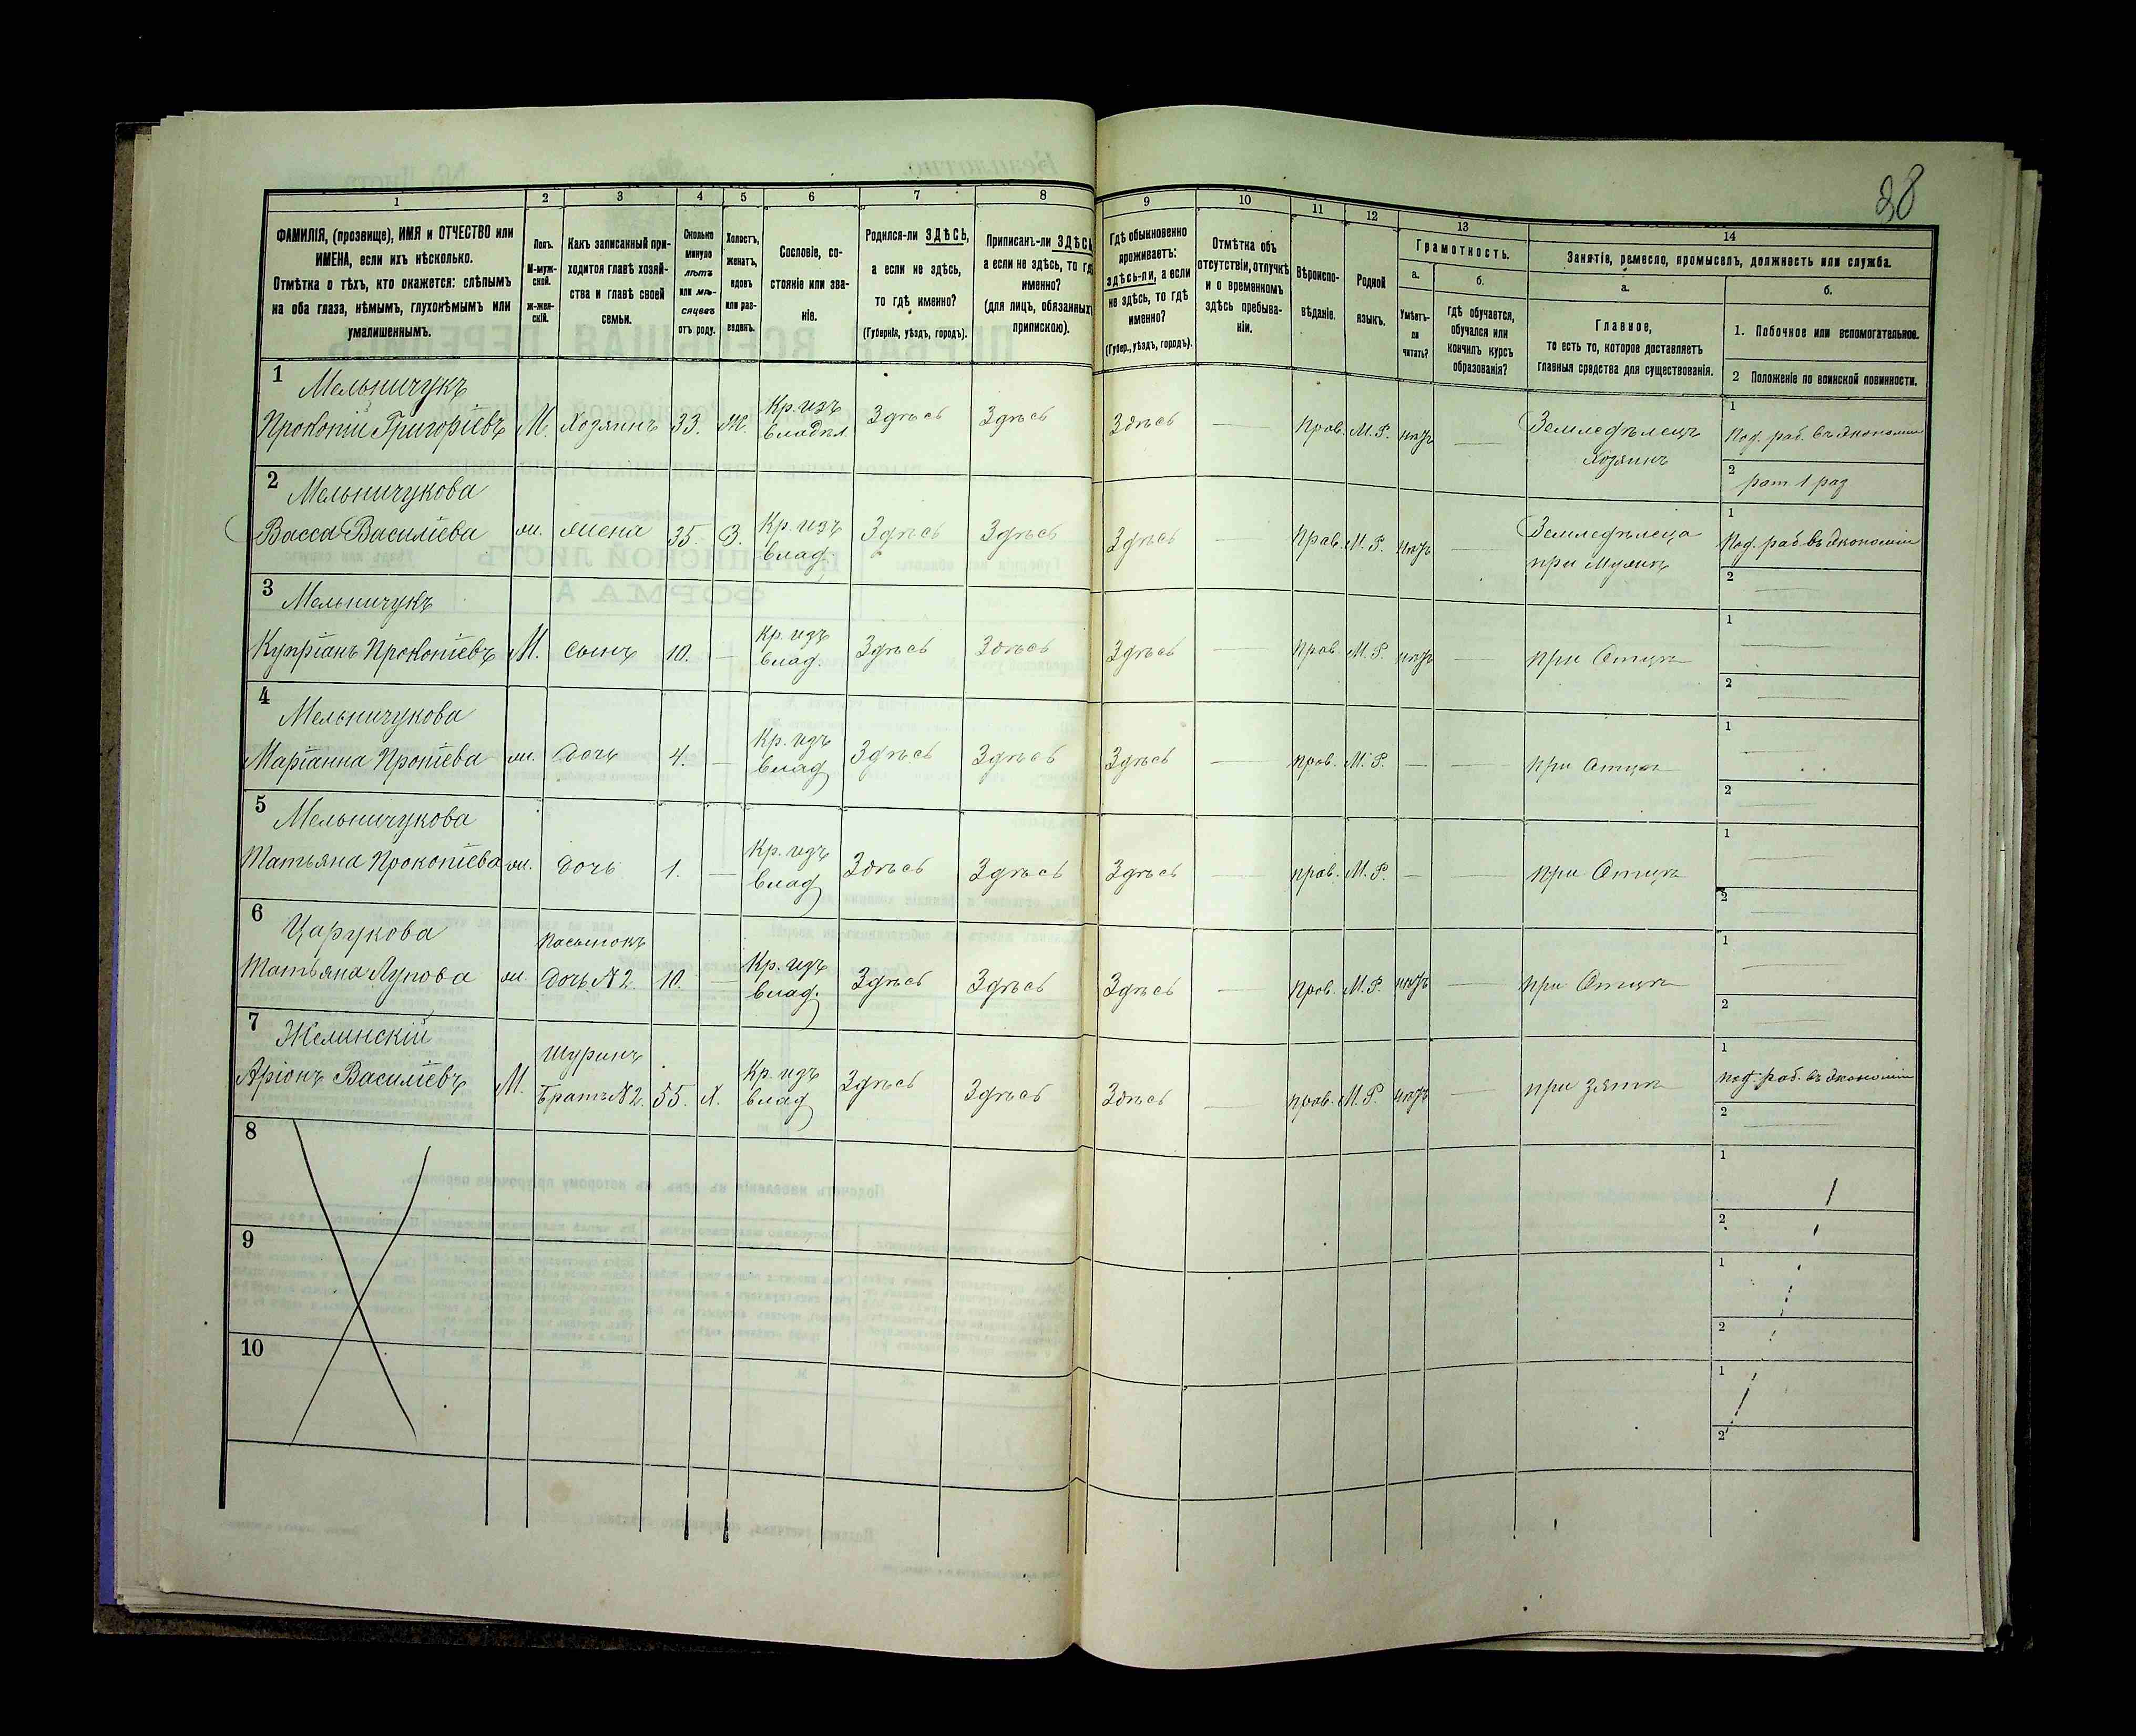 28
1 2 3 4 5 6 7 8 9 10 11 12 13 14
ФАМИЛІЯ, (прозвище), ИМЯ и ОТЧЕСТВО или
ИМЕНА, если ихъ нѣсколько.
Отмѣтка о тѣхъ, кто окажется: слѣпымъ
на оба глаза, нѣмымъ, глухонѣмымъ или
умалишеннымъ.
Полъ.
М-муж-
ской.
ж-жен-
скій.
Какъ записанный при-
ходится главѣ хозяй-
ства и главѣ своей
семьи.
Сколько
минуло
лѣтъ
или мѣ-
сяцевъ
отъ роду.
Холостъ,
женатъ,
вдовъ
или раз-
веденъ.
Сословіе, со-
стояніе или зва-
ніе.
Родился-ли ЗДѢСЬ,
а если не здѣсь,
то гдѣ именно?
(Губернія, уѣздъ, городъ).
Приписанъ-ли ЗДѢСЬ
а если не здѣсь, то гдѣ
именно?
(для лицъ, обязанныхъ
припискою).
Гдѣ обыкновенно
проживаетъ:
здѣсь-ли, а если
не здѣсь, то гдѣ
именно?
(Губер., уѣздъ, городъ).
Отмѣтка объ
отсутствіи, отлучкѣ
и о временномъ
здѣсь пребыва-
ніи.
Вѣроиспо-
вѣданіе.
Родной
языкъ.
Грамотность.
а.
Умѣетъ-
ли
читать?
б.
гдѣ обучается,
обучался или
кончилъ курсъ
образованія?
Занятіе, ремесло, промыселъ, должность или служба.
а.
Главное,
то есть то, которое доставляетъ
главныя средства для существованія.
б.
1. Побочное или вспомогательное.
2 Положеніе по воинской повинности.
1 Мельничукъ
Прокопій Григоріевъ М. Хозяинъ 33. Ж. Кр. изъ владѣл. Здѣсь Здѣсь Здѣсь — Прав. М. Р. нѣтъ — Земледѣлецъ Хозяинъ
1 Под. раб. въ Экономіи
2 рат. 1 раз
2 Мельничукова
Васса Василіева ж. жена 35. З. Кр. изъ влад. Здѣсь Здѣсь Здѣсь — Прав. М. Р. нѣтъ — Земледѣлеца при Мужѣ
1 Под. раб въ Экономіи
2 —
3 Мельничукъ
Купріанъ Прокопіевъ М. сынъ 10. — Кр. изъ влад. Здѣсь Здѣсь Здѣсь — прав. М. Р. нѣтъ — при Отцѣ
1 —
2 —
4 Мельничукова
Маріанна Пропіева ж. дочь 4. — Кр. изъ влад Здѣсь Здѣсь Здѣсь — прав. М. Р. — — при Отцѣ
1 —
2 —
5 Мельничукова
Татьяна Прокопіева ж. дочь 1. — Кр. изъ влад Здѣсь Здѣсь Здѣсь — прав. М. Р. — — при Отцѣ
1 —
2 —
6 Царукова
Татьяна Лупова ж. пасынокъ дочь N 2. 10. — Кр. изъ влад. Здѣсь Здѣсь Здѣсь — прав. М. Р. нѣтъ — при Отцѣ
1 —
2 —
7 Желинскій
Аріонъ Василіевъ М. Шуринъ Братъ N 2. 55. Х. Кр. изъ влад Здѣсь Здѣсь Здѣсь — прав. М. Р. нѣтъ — при зятѣ
1 под. раб. въ Экономіи
2 —
8
1
2
9
1
2
10
1
2